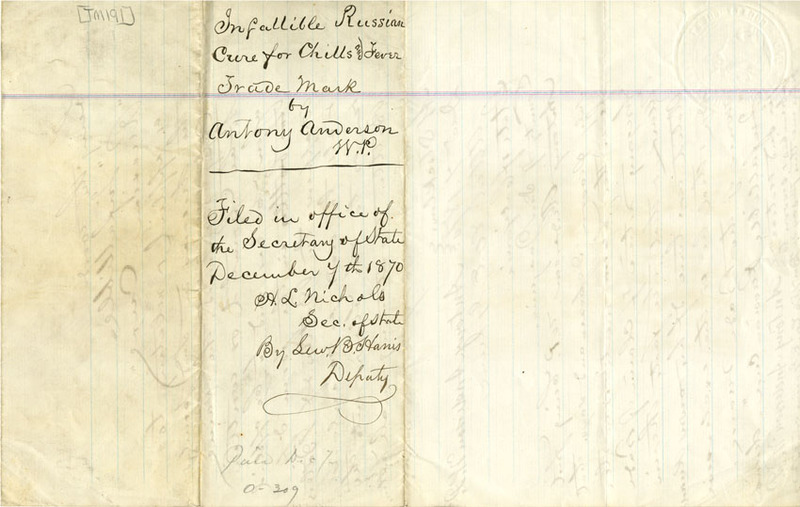 [TM19]
Infallible Russian
Cure for Chills & Fever
Trade Mark
by
Antony Anderson
W.P.
Filed in office of
the Secretary of State
December 7th 1870
H. L. Nichols
Sec. of State
By Lew. B Harris
Deputy
0-309